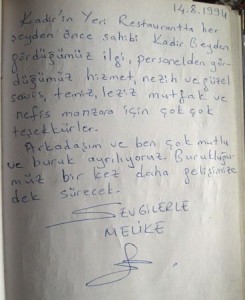 14.8.1994
Kadir'in Yeri Restaurantta her
şeyden önce sahibi Kadir Beyden
gördüğümüz ilgi, personelden gör-
düğümüz hizmet, nezih ve güzel
servis, temiz, leziz mutfak ve
nefis manzara için çok çok
teşekkürler.
Arkadaşım ve ben çok mutlu
ve buruk ayrılıyoruz. Burukluğu-
müz bir kez daha gelişimize
dek sürecek.
SEVGİLERLE
MELİKE